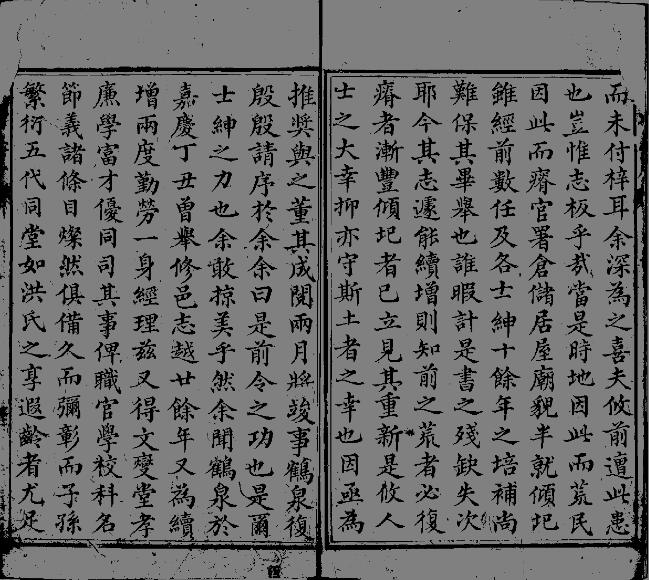 而未付梓耳余深為之喜夫攸前遭此患
也豈惟志板乎哉當是時地因此而荒民
因此而瘠官署倉儲居屋廟貌半就傾圮
雖經前數任及各士紳十餘年之培補尚
難保其畢舉也誰暇計是書之殘缺失次
耶今其志遽能續增則知前之荒者必復
瘠者漸豐傾圮者已立見其重新是攸人
士之大幸抑亦守斯土者之幸也因亟為
推奬與之董其成閱兩月將竣事鶴泉復
殷殷請序於余余曰是前令之功也是爾
士紳之力也余敢掠美乎然余聞鶴泉於
嘉慶丁丑曾舉修邑志越廿餘年又為續
增兩度勤勞一身經理兹又得文燮堂孝
廉學富才優同司其事俾職官學校科名
節義諸條目燦然俱備久而彌彰而子孫
繁衍五代同堂如洪氏之享遐齡者尤足
四